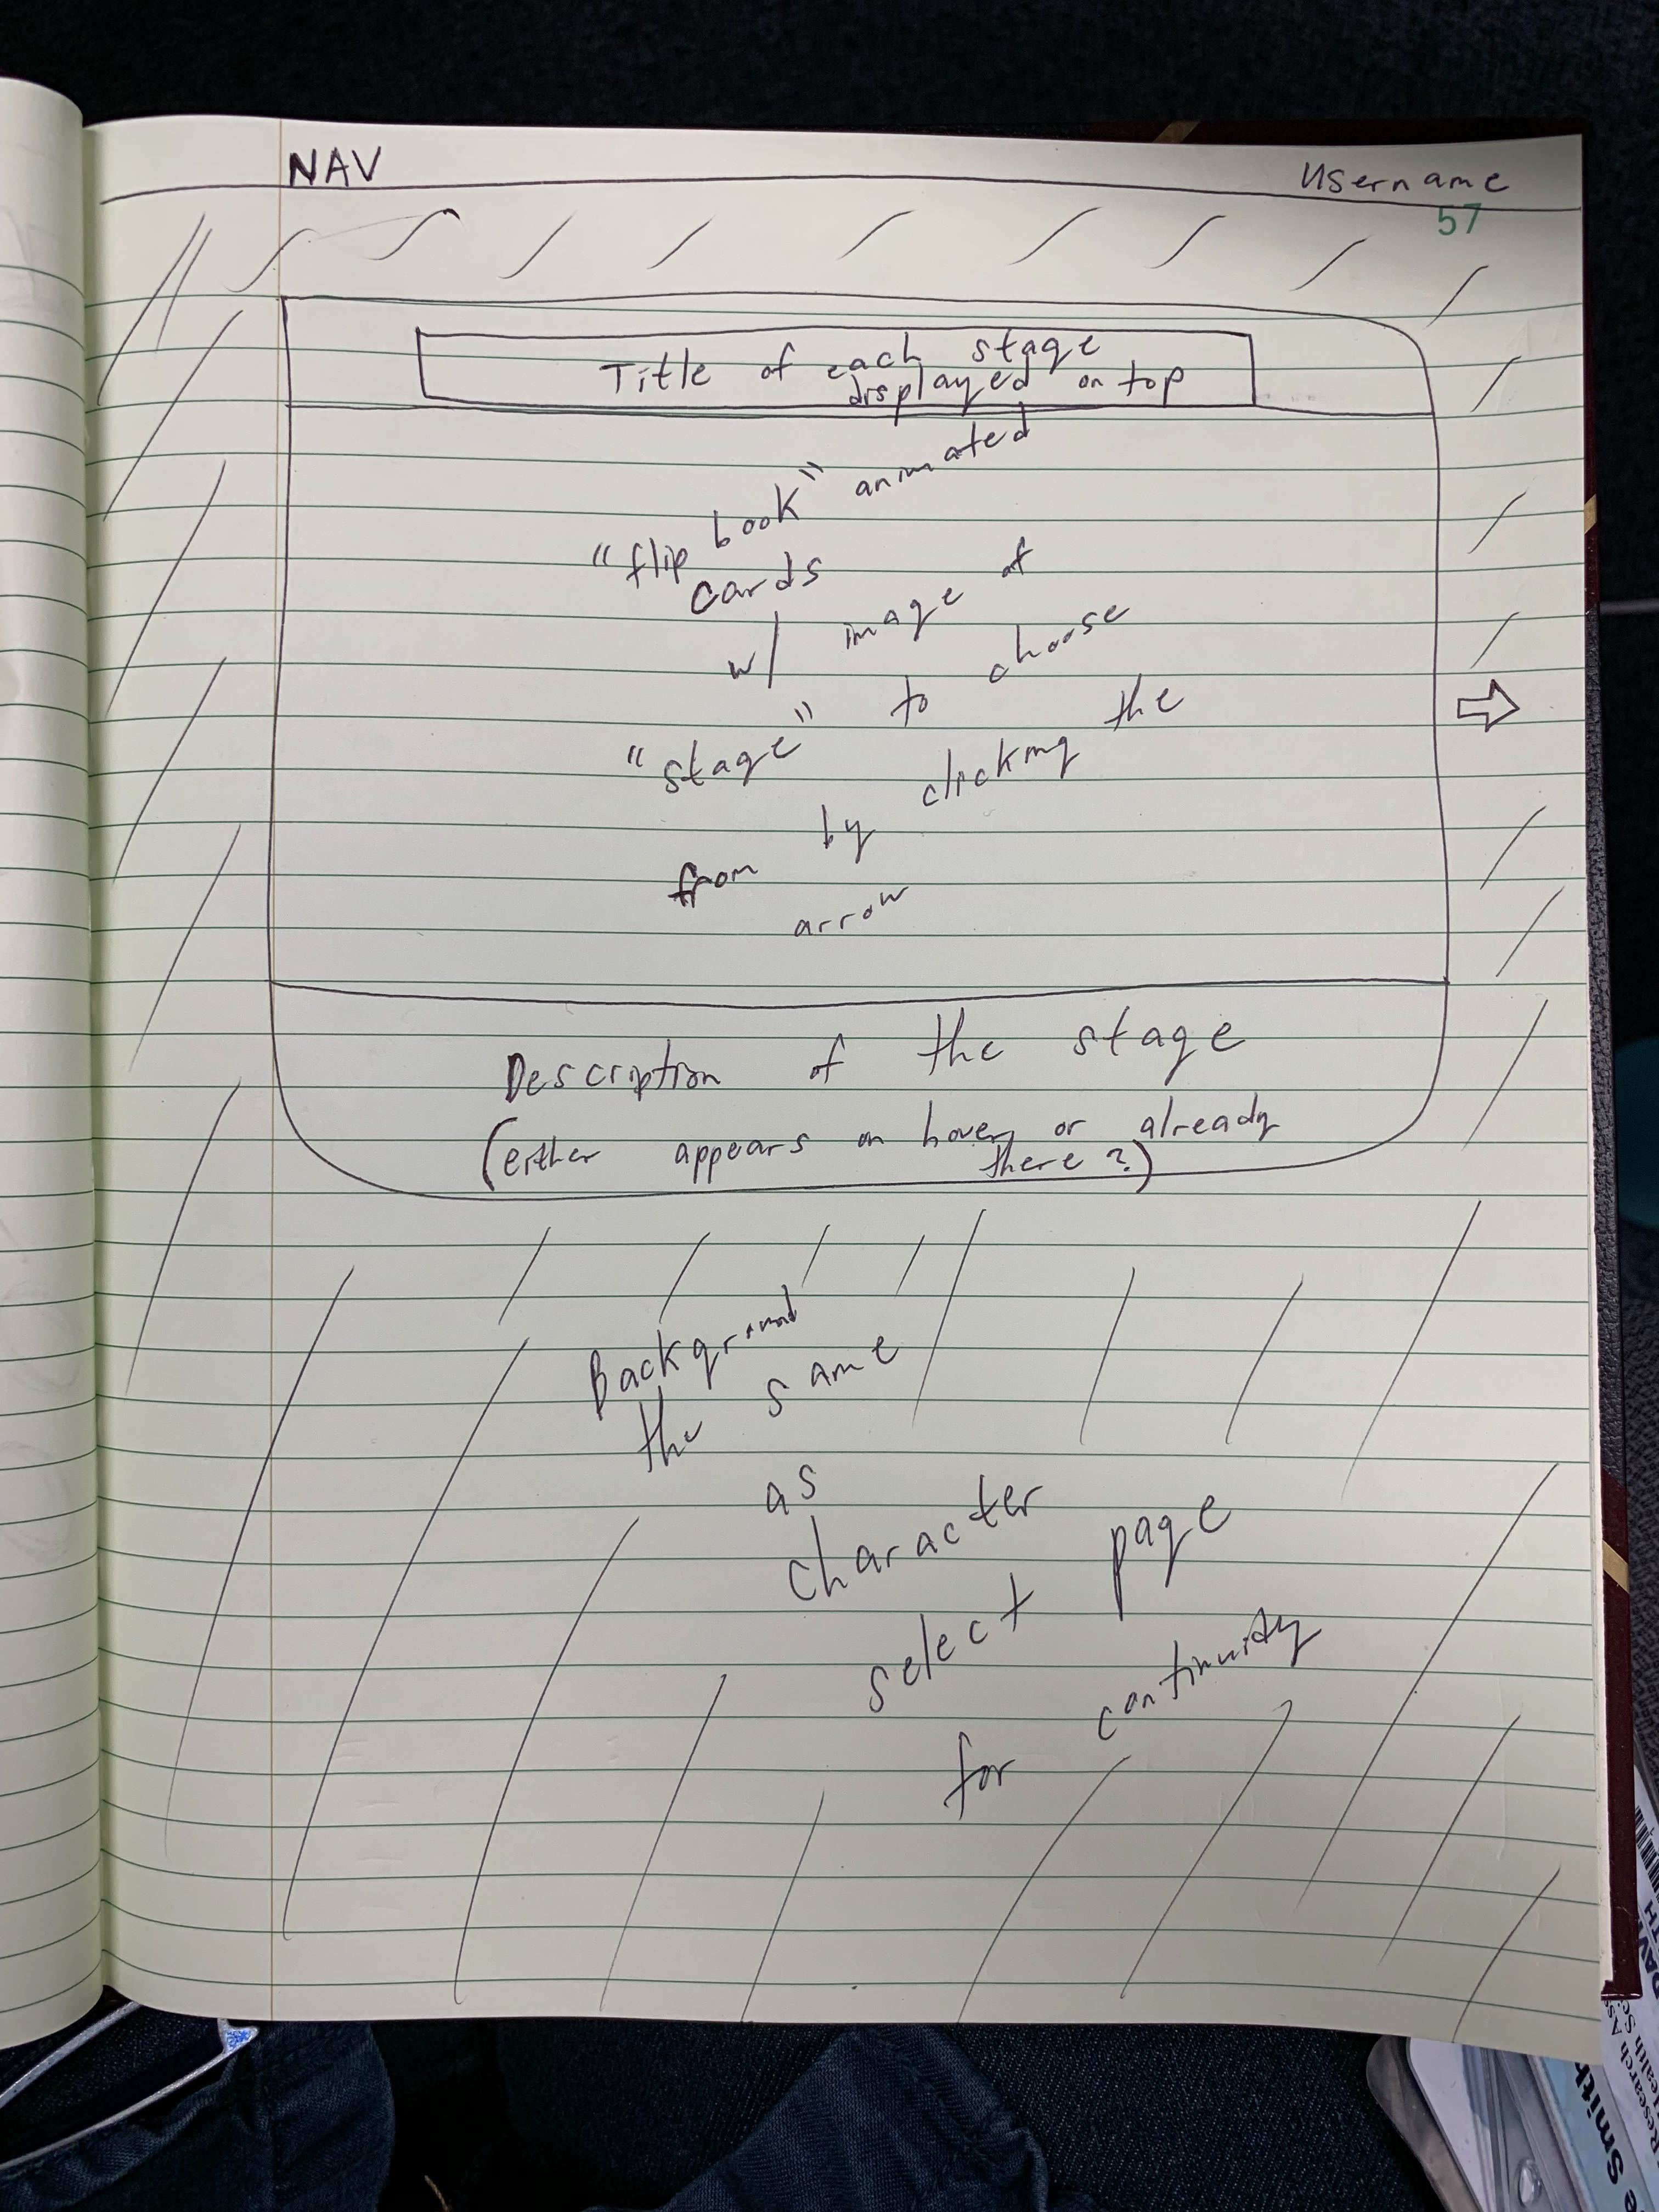 NAV
Username
57
Title of each stage
displayed on top
"flip book" animated
cards
w/ image of
"stage" to choose
from by clicking the
arrow
Description of the stage
(either appears on hover, or already
there?)
Background
the same
as
character
select page
for continuity
Smith
Research